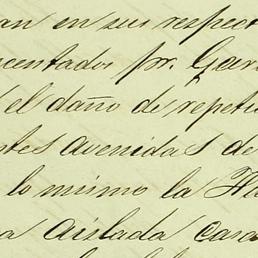 an en sus respect
centados pr. Gar
el daño de repeti
ntes avenidas de
lo mismo la Ha
a aislada casa